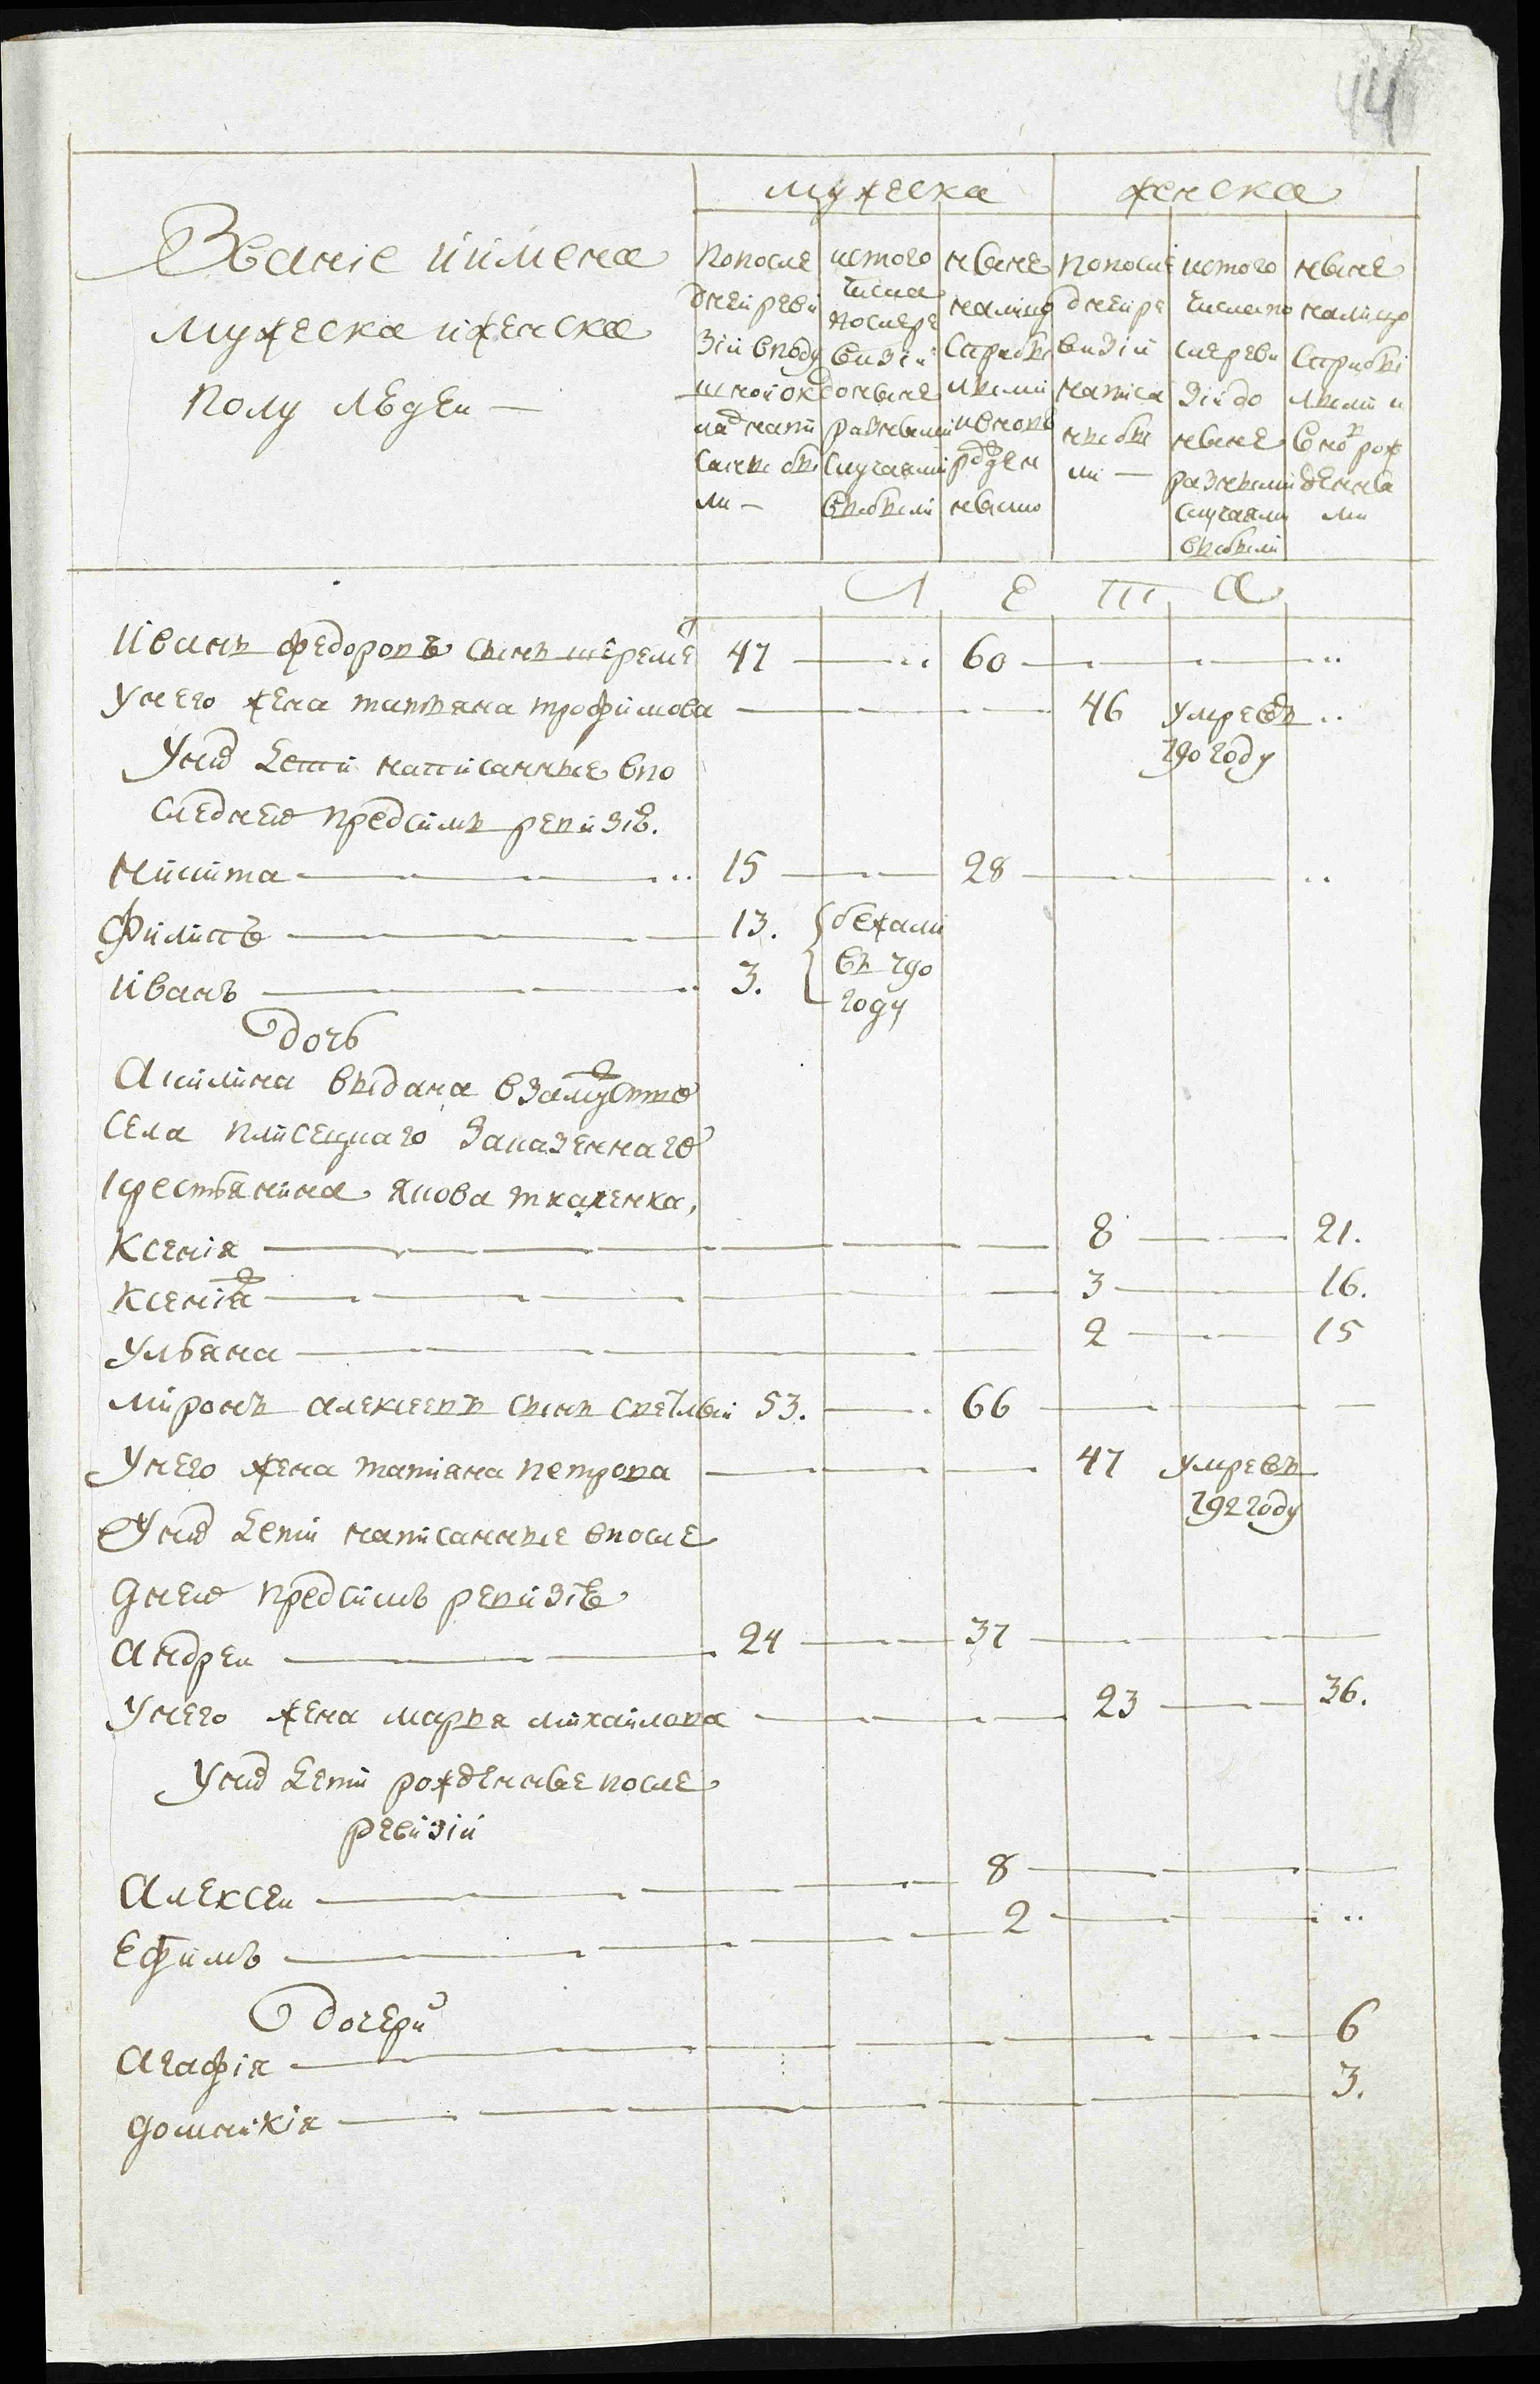 44
мужеска женска
Званіе иимена
мужеска иженска
полу людеи —
попосле
дней реви
зіи вподу
шной ок
ладъ напи
санъ бы
ли —
истого
числа
послере
визіи
доныне
разными
случаями
выбыли
ныне
налицо
Сприбы
лыми
ивновъ
рожден
ными
попосле
дней ре
визіи
написа
ны бы
ли —
истого
числапо
слереви
зіи до
ныне
разными
случаями
выбыли
ныне
налицо
Сприбы
лыми и
вновь рож
денны
ми
Л Е Т А
Иванъ федоровъ сынъ шереме 47 — .. 60 — — — ..
Унего жена татьяна трофимова — — — 46 умре въ ..
790 году
Унихъ дети написанные впо
следнею предсимъ ревизію.
Никита — .. 15 — 28 — — ..
Филипъ — 13. бежали
въ 790
году
Иванъ — 3.
дочь
Акилина выдана взамужство
села плисецкаго заказеннаго
крестьянина якова ткаченка,
Ксенія — 8 — 21.
Ксенія — 3 — 16.
Ульяна — 2 — 15
миронъ алексеевъ сынъ светлый 53. — 66 — — —
Унего жена татіана петрова — — — 47 умре въ
792 году
Унихъ дети написанные впосле
днею предсимъ ревизію
Андреи — 24 — 37 — — —
Унего жена марья михайлова — — 23 — 36.
Унихъ дети рожденные после
ревизіи
Алексеи — 8 — —
Ефимъ — 2 — ..
дочери
Агафія — 6
домникія — 3.